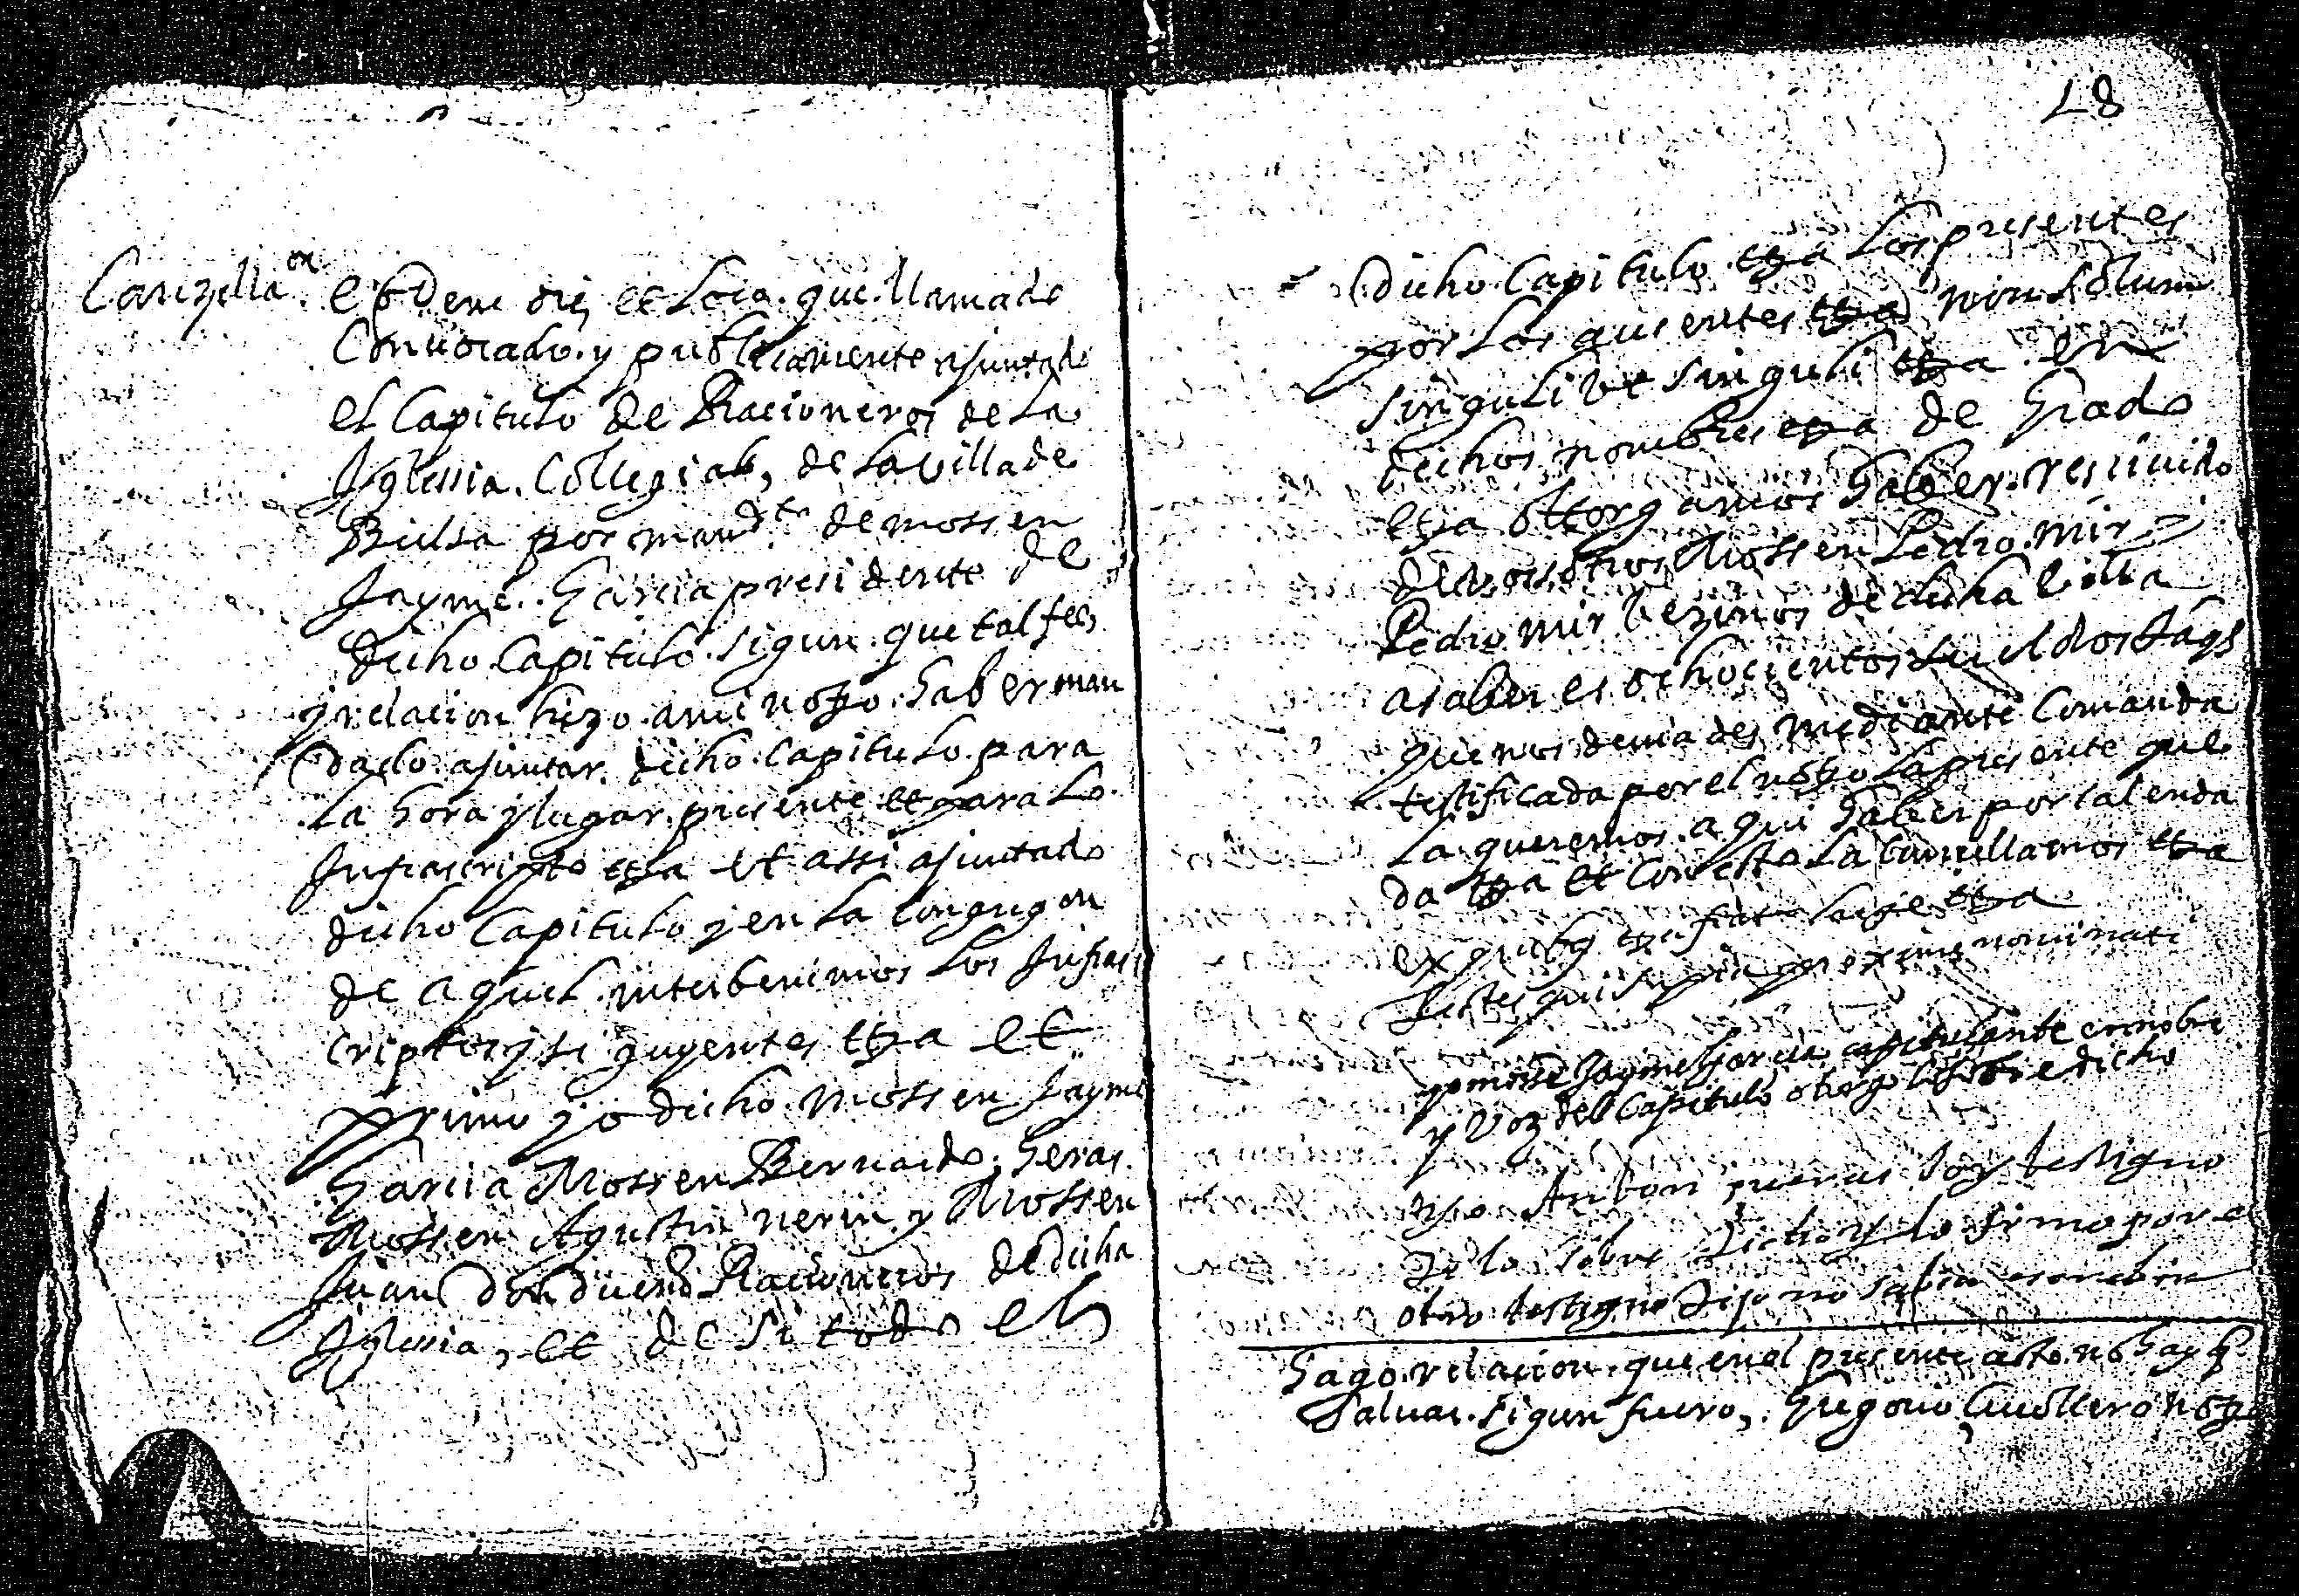 Canzella.on
Eodem die et Loco. que llamado
Conuocado. y publicamente ajuntado
el Capitulo de Racioneros de La
Iglessia. Collegial, de La Villa de
Bielsa por mandto de mossen
Jayme. Garcia presidente de
dicho Capitulo. sigun. que tal fee
y relacion hizo. a mi noto. Haber man
dado ajuntar dicho Capitulo. para
La hora y lugar. presente et para Lo
Infrascripto etta et assi ajuntado
dicho Capitulo y en La Congregon
de aquel. interbenimos Los Infras
criptos y siguyentes etta et
primo yo dicho. mossen Jayme
Garcia Mossen Bernardo, Heras.
Mossen Agustin nerin y Mossen
Juan Racioneros de dicha
Iglesia, et de si todo el
28
dicho Capitulo. etta Los presentes
por Los ausentes etta non solum
singuli ut singuli etta en
dichos nombres etta de Grado
etta ottorgamos Haber. resciuido
de vosotros Mossen Pedro. mir y
Pedro mir vezinos de dicha Villa
asaber es ochocientos sueldos Jaqs
que nos deuiades mediante Comanda
testificada por el noto La presente que
La queremos. aqui Haber por calenda
da etta et con esto La canzellamos etta
ex quibus etta fiat Large etta
Testes qui supra proxime nominati
yo mossen Jayme Garcia capitulante en nobre
y Voz del Capitulo otorgo lo sobredicho
yo Anton soy testigno
de lo sobre dicho y lo firmo por el
otro testigno dijo no sabia escrebir
Hago. relacion. que en el presente acto. no Hay q.
Saluar. sigun fuero,. Gregorio noto